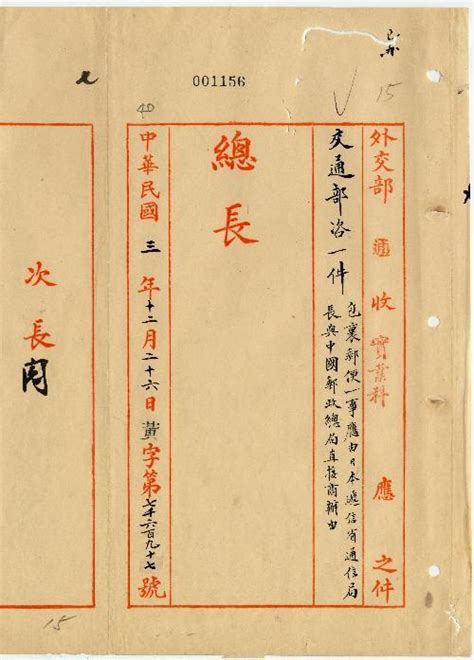 001156
15
40
外交部 通 收 實業科 應 之件
交通部咨一件
包裹郵便一事應由日本遞信省通信局
長與中國郵政總局直接商辦由
總長
中華民國三年十二月二十六日黃字第七千六百九十七號
次長
15